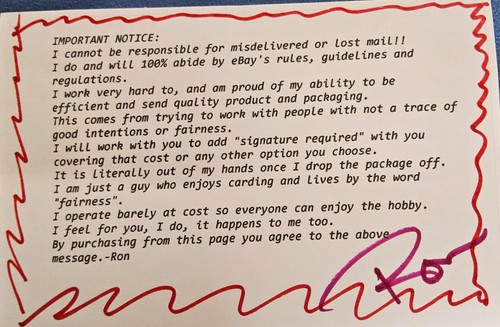 IMPORTANT NOTICE:
I cannot be responsible for misdelivered or lost mail!!
I do and will 100% abide by eBay's rules, guidelines and
regulations.
I work very hard to, and am proud of my ability to be
efficient and send quality product and packaging.
This comes from trying to work with people with not a trace of
good intentions or fairness.
I will work with you to add "signature required" with you
covering that cost or any other option you choose.
It is literally out of my hands once I drop the package off.
I am just a guy who enjoys carding and lives by the word
"fairness".
I operate barely at cost so everyone can enjoy the hobby.
I feel for you, I do, it happens to me too.
By purchasing from this page you agree to the above
message.-Ron
Ron